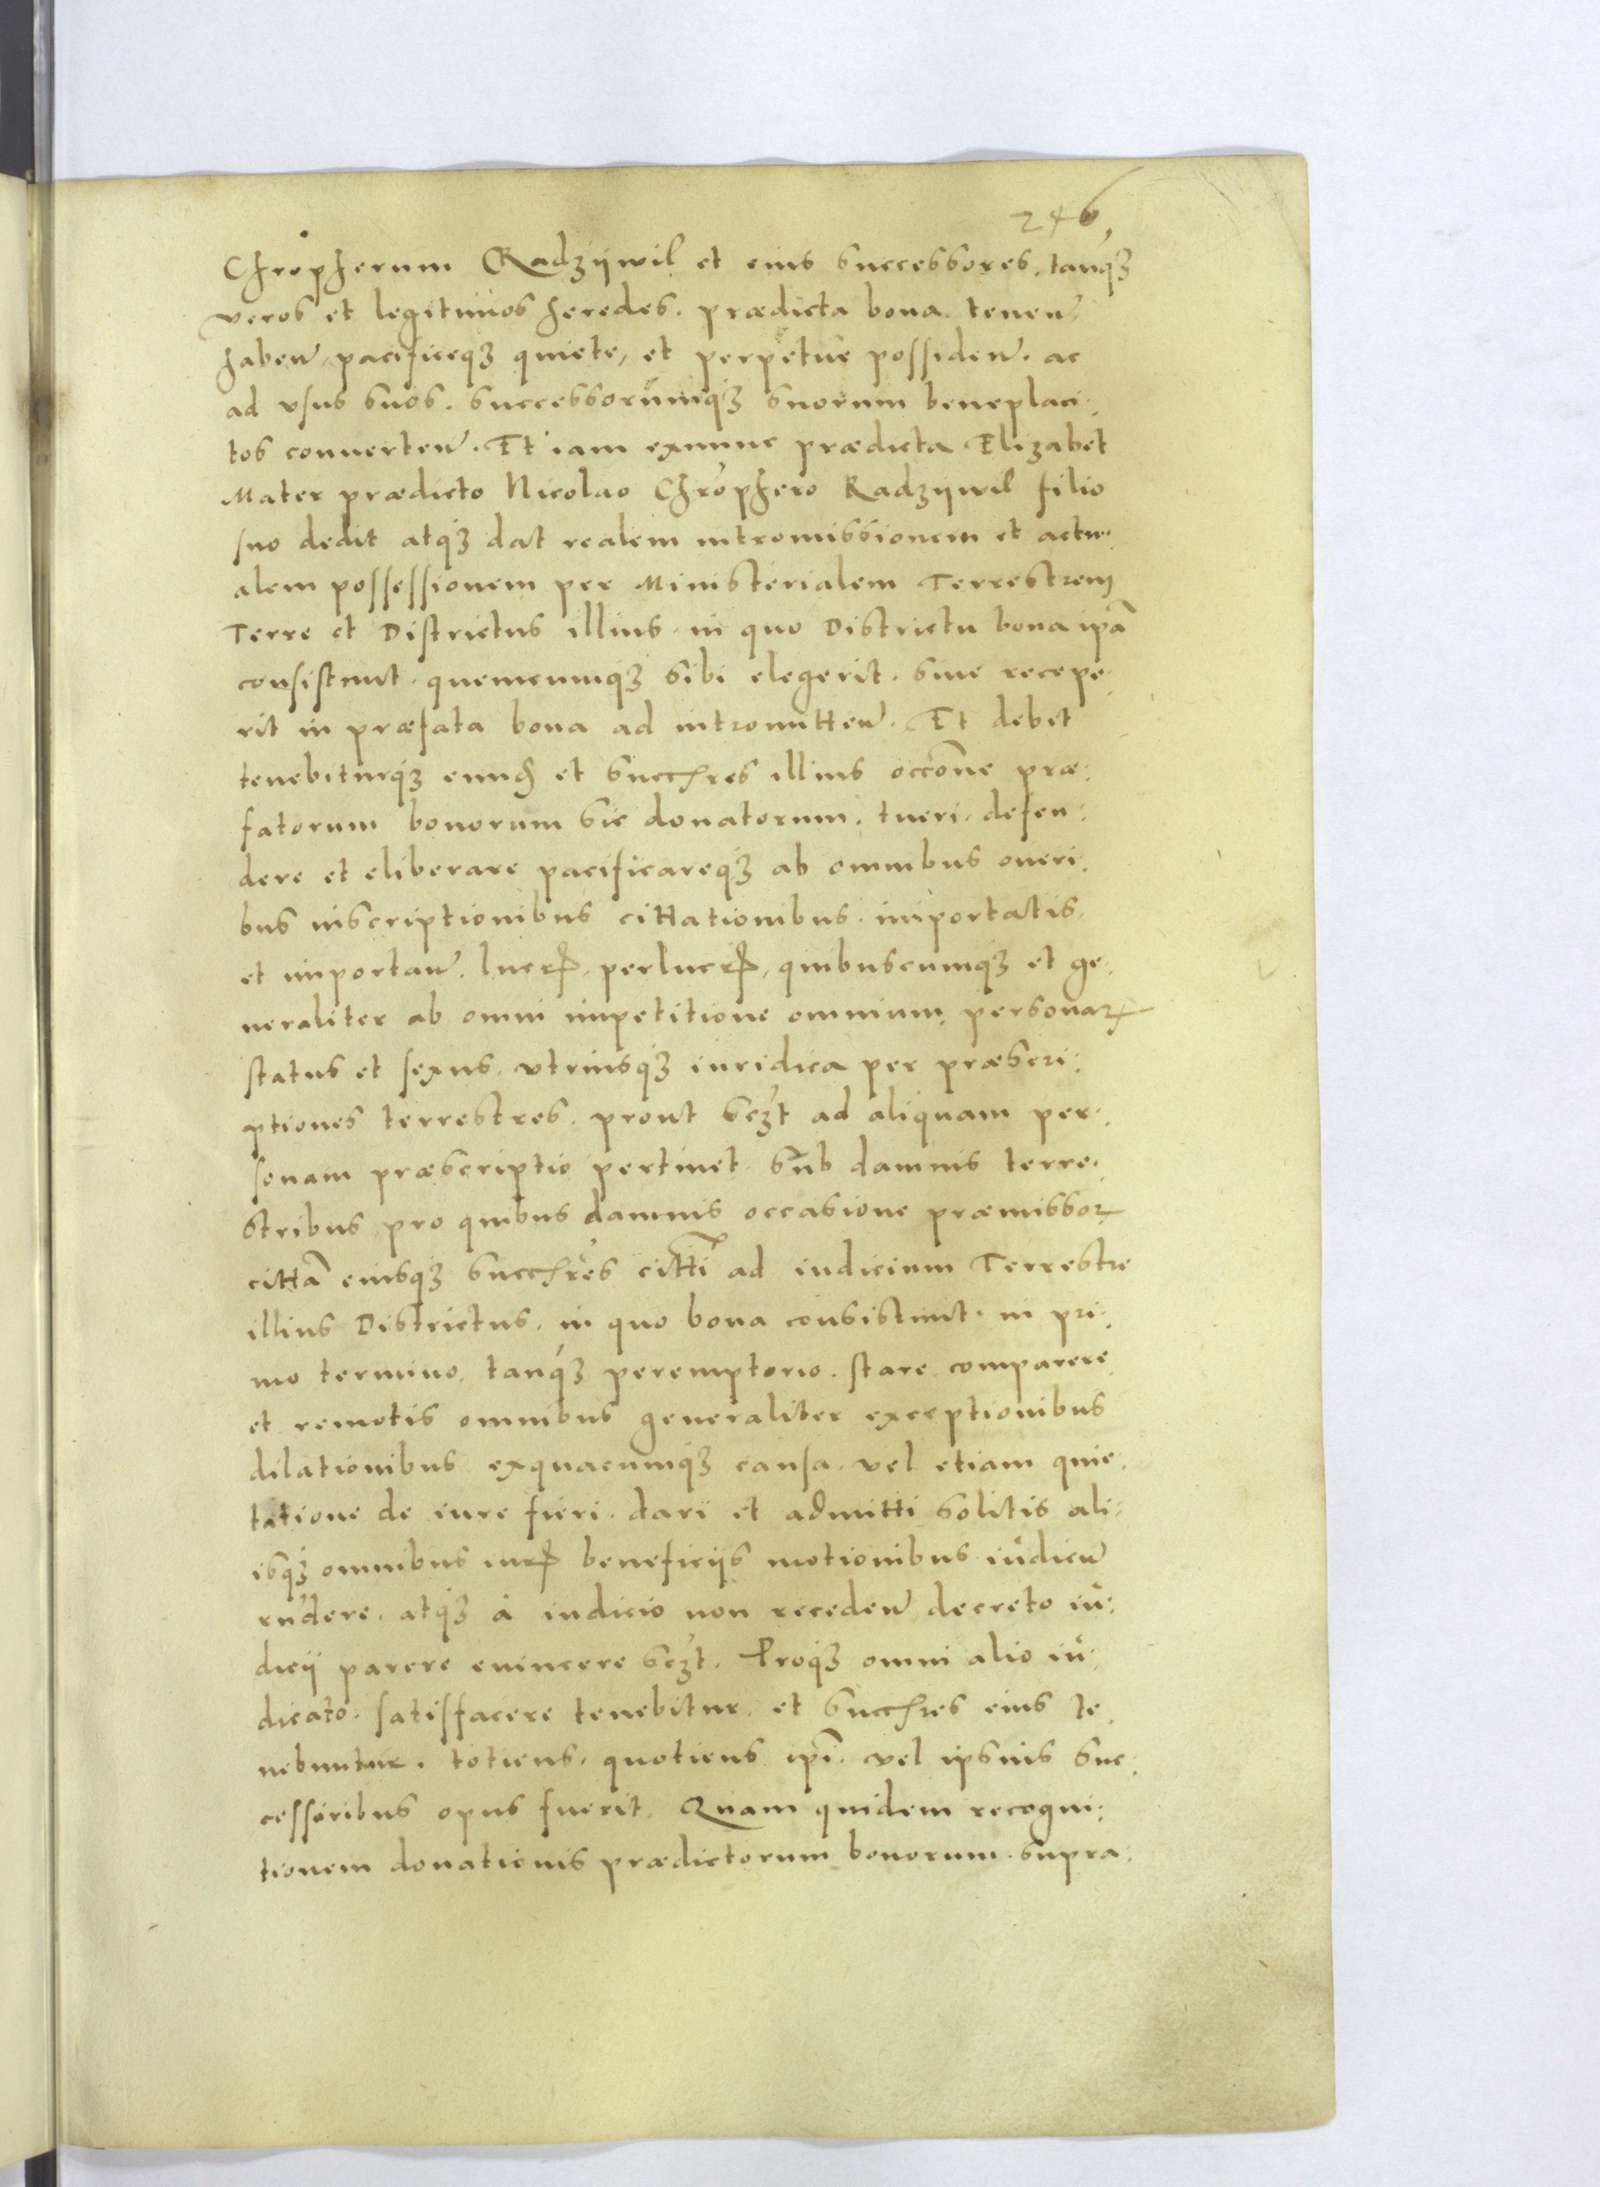 246
Chropherum Radziiwil et eius successores, tanq̃ʒ
veros et legitimos heredes. prædicta bona. tenen̄
haben̄, pacificeqʒ quiete, et perpetue possiden̄. ac
ad vsus suos. successorumqʒ suorum beneplaci:
tos conuerten̄. Et iam exnunc prædicta Elizabet
Mater prædicto Nicolao Chrophero Radziiwil filio
suo dedit atqʒ dat realem intromissionem et actu:
alem possessionem per Ministerialem Terrestrem
Terre et Districtus illius. in quo Districtu bona ip̄a
consistunt. quemcumqʒ sibi elegerit. siue recepe:
rit in præfata bona ad intromitten̄. Et debet
tenebiturqʒ eund̄ et succ̄res illius occōne præ:
fatorum bonorum sic donatorum. tueri. defen:
dere et eliberare pacificareqʒ ab omnibus oneri:
bus inscriptionibus cittationibus. importatis,
et importan̄. lucrꝭ, perlucrꝭ, quibuscumqʒ et ge:
neraliter ab omni impetitione omnium, personaꝝ
status et sexus. vtriusqʒ iuridica per præscri:
ptiones terrestres. prout sczt ad aliquam per:
sonam præscriptio pertinet. sub damnis terre:
stribus pro quibus damnis occasione præmissoꝝ
citta̅ eiusqʒ succ̄res citti̅ ad iudicium Terrestre
illius Districtus. in quo bona consistunt. in pri:
mo termino. tanq̃ʒ peremptorio. stare comparere
et remotis omnibus generaliter exceptionibus
dilationibus exquacumqʒ causa. vel etiam quie:
tatione de iure fieri. dari et admitti solitis ali:
isqʒ omnibus iurꝭ beneficijs motionibus iudicū
rn̄dere. atqʒ à iudicio non receden̄ decreto iu:
dicij parere euincere sczt. Proqʒ omni alio iu:
dicato. satisfacere tenebitur. et succ̄res eius te:
nebuntur. totiens. quotiens ip̄i. vel ipsius suc:
cessoribus opus fuerit. Quam quidem recogni:
tionem donationis prædictorum bonorum. supra: